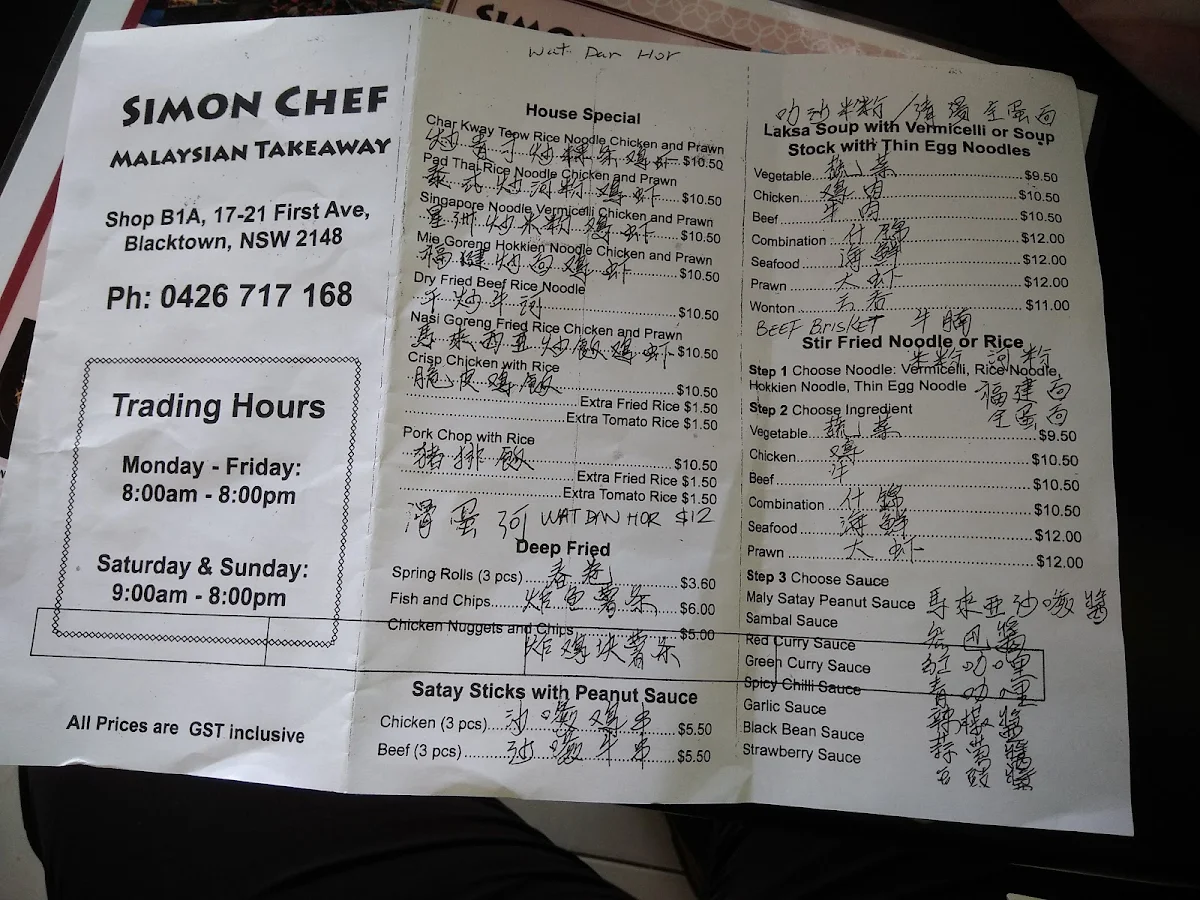 SIMON CHEF
MALAYSIAN TAKEAWAY
Shop B1A, 17-21 First Ave,
Blacktown, NSW 2148
Ph: 0426 717 168
Trading Hours
Monday - Friday:
8:00am - 8:00pm
Saturday & Sunday:
9:00am - 8:00pm
All Prices are GST inclusive
Wat Dan Hor
House Special
Char Kway Teow Rice Noodle Chicken and Prawn
$10.50
Pad Thai Rice Noodle Chicken and Prawn
泰式炒河粉鸡虾 $10.50
Singapore Noodle Vermicelli Chicken and Prawn
星洲炒米粉鸡虾 $10.50
Mie Goreng Hokkien Noodle Chicken and Prawn
福建炒面鸡虾 $10.50
Dry Fried Beef Rice Noodle
干炒牛河 $10.50
Nasi Goreng Fried Rice Chicken and Prawn
馬来西亚炒飯鸡虾 $10.50
Crisp Chicken with Rice
脆皮鸡飯 $10.50
Extra Fried Rice $1.50
Extra Tomato Rice $1.50
Pork Chop with Rice
猪排飯 $10.50
Extra Fried Rice $1.50
Extra Tomato Rice $1.50
滑蛋河 WAT DAN HOR $12
Deep Fried
Spring Rolls (3 pcs) 春卷 $3.60
Fish and Chips 炸鱼薯条 $6.00
Chicken Nuggets and Chips $5.00
炸鸡块薯条
Satay Sticks with Peanut Sauce
Chicken (3 pcs) 沙嗲鸡串 $5.50
Beef (3 pcs) 沙嗲牛串 $5.50
Laksa Soup with Vermicelli or Soup
Stock with Thin Egg Noodles
Vegetable 蔬菜 $9.50
Chicken 鸡肉 $10.50
Beef 牛肉 $10.50
Combination 什錦 $12.00
Seafood 海鮮 $12.00
Prawn 大虾 $12.00
Wonton 云吞 $11.00
BEEF BRISKET 牛腩
Stir Fried Noodle or Rice
米粉 河粉
Step 1 Choose Noodle: Vermicelli, Rice Noodle,
Hokkien Noodle, Thin Egg Noodle 福建面
全蛋面
Step 2 Choose Ingredient
Vegetable 蔬菜 $9.50
Chicken 鸡 $10.50
Beef 牛 $10.50
Combination 什錦 $10.50
Seafood 海鮮 $12.00
Prawn 大虾 $12.00
Step 3 Choose Sauce
Maly Satay Peanut Sauce 馬来亚沙嗲醬
Sambal Sauce
Red Curry Sauce
Green Curry Sauce 紅咖喱
Spicy Chilli Sauce 青咖喱
Garlic Sauce 辣椒醬
Black Bean Sauce
Strawberry Sauce